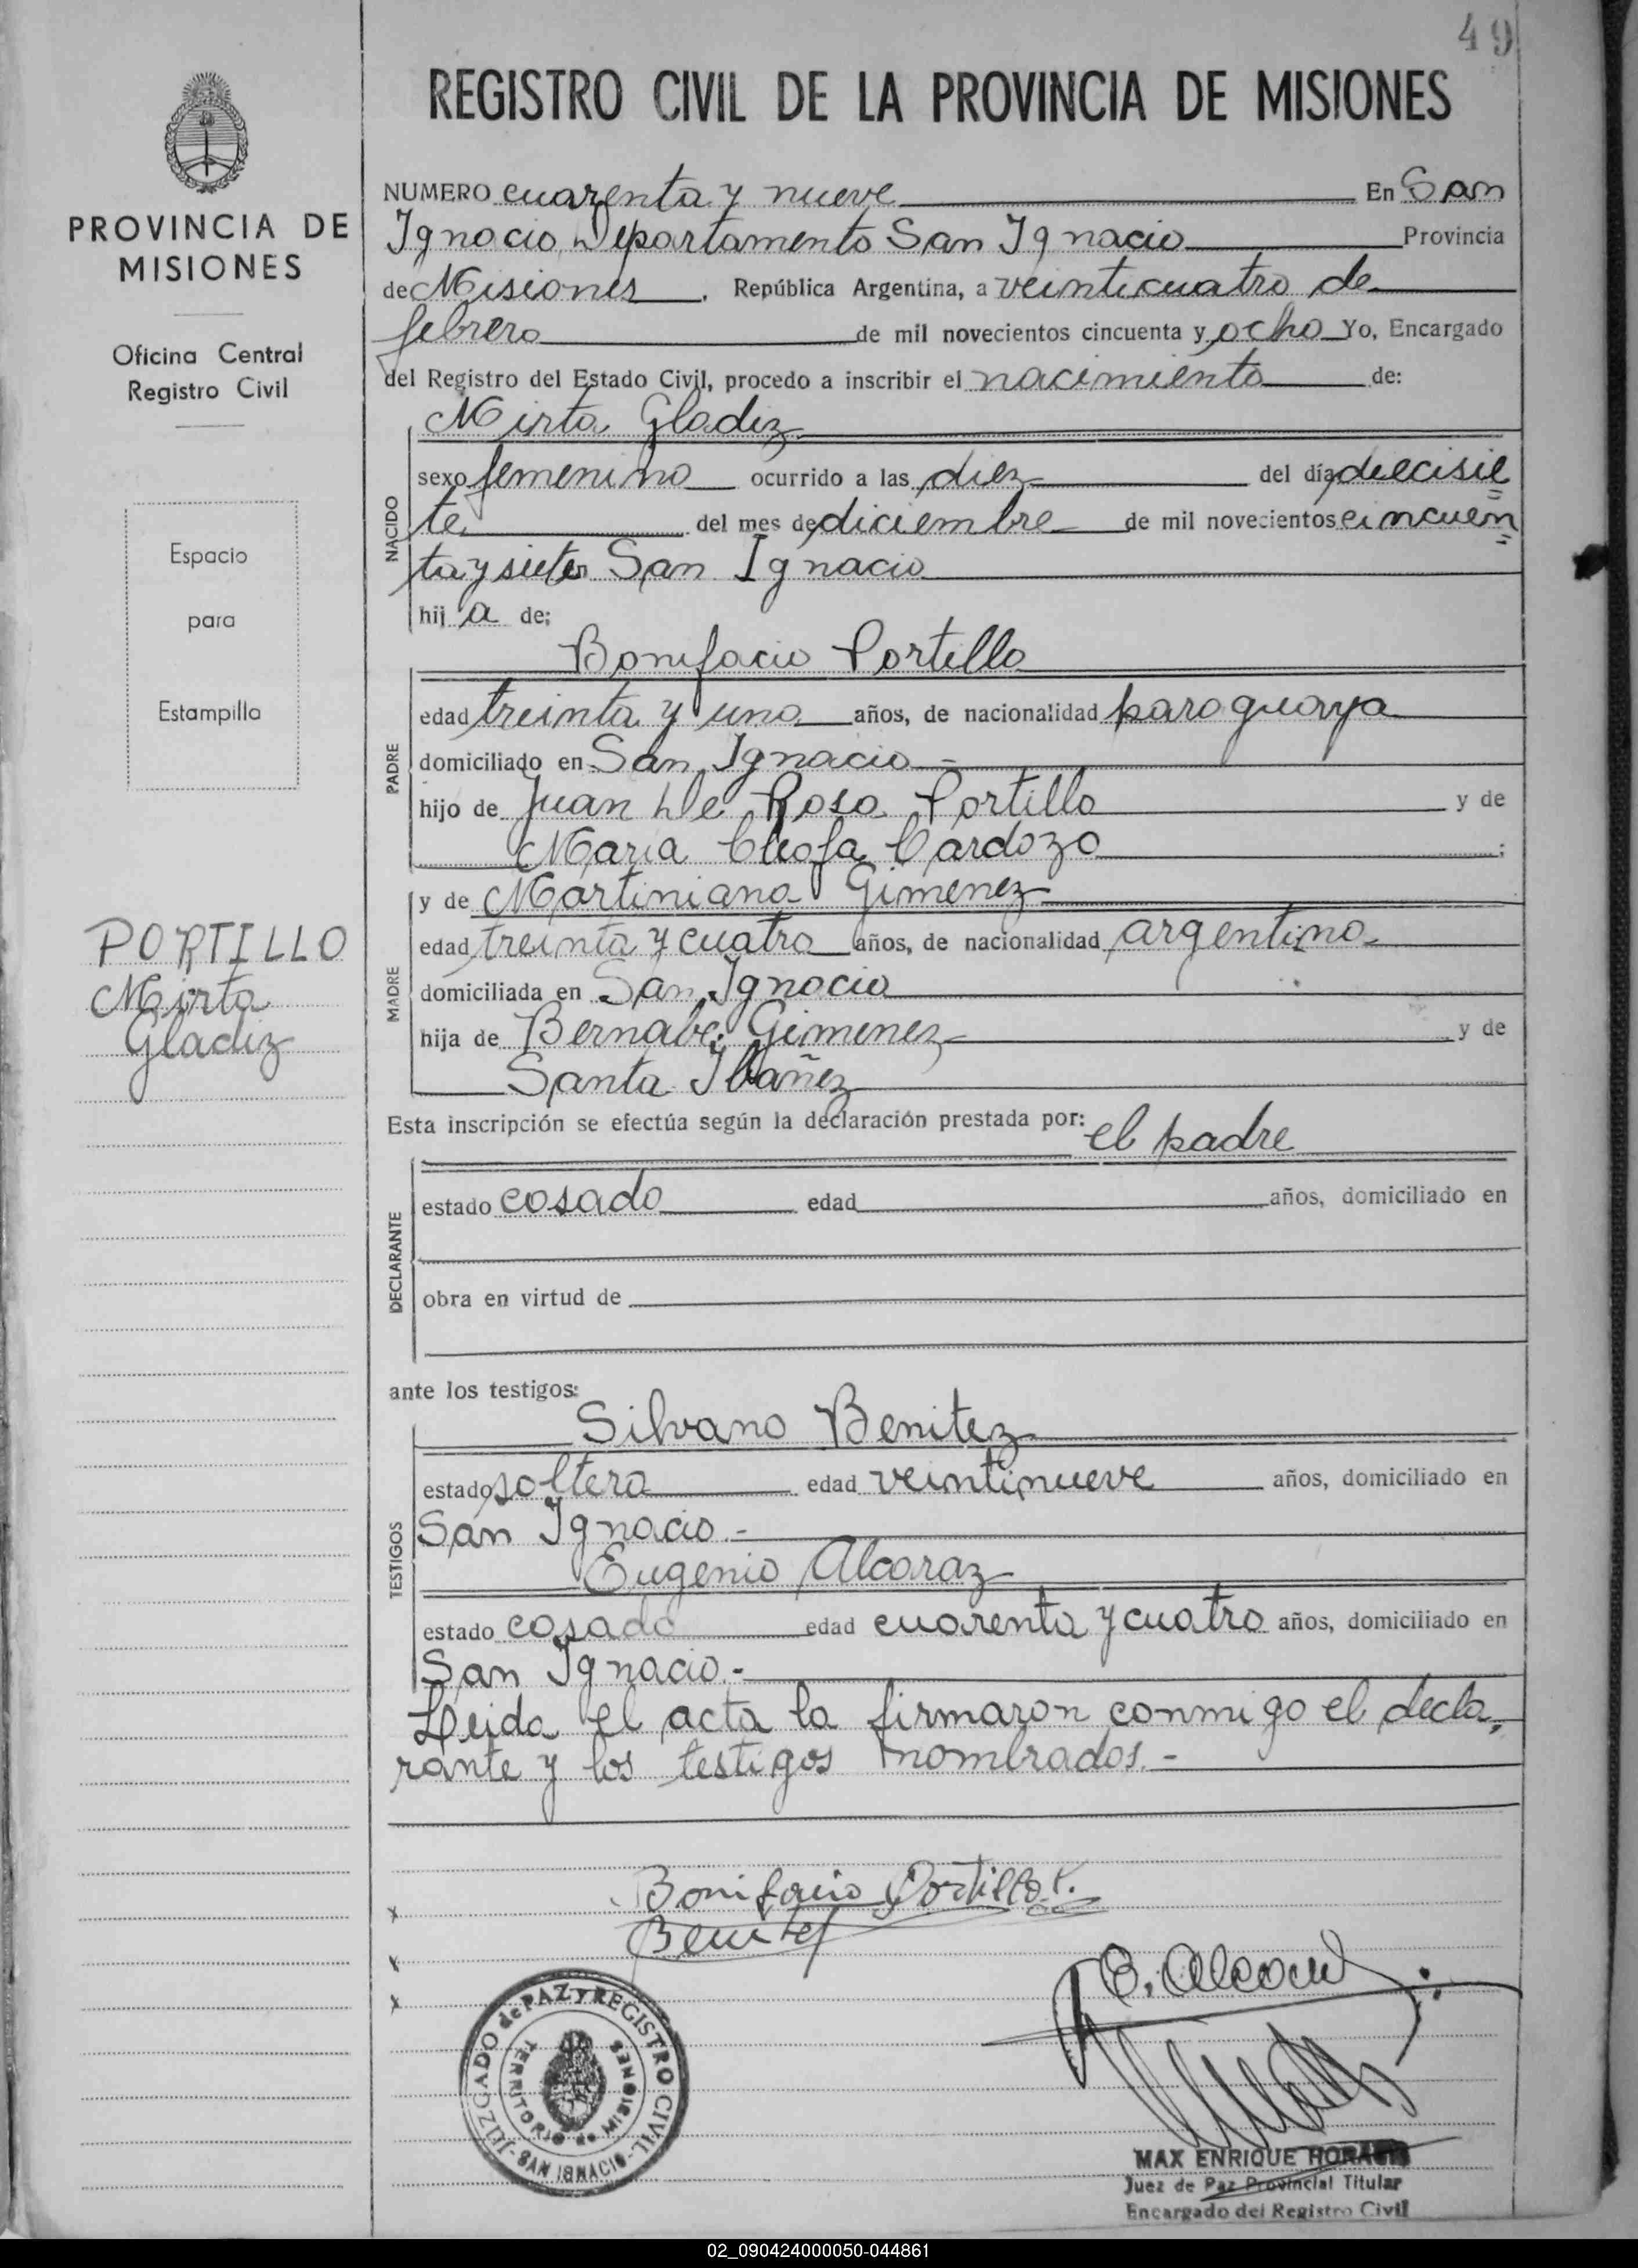 49
REGISTRO CIVIL DE LA PROVINCIA DE MISIONES
PROVINCIA DE
MISIONES
Oficina Central
Registro Civil
Espacio
para
Estampilla
PORTILLO
Mirta
Gladiz
NUMERO cuarenta y nueve En San
Ignacio Departamento San Ignacio Provincia
de Misiones , República Argentina, a veinticuatro de
febrero de mil novecientos cincuenta y ocho Yo, Encargado
del Registro del Estado Civil, procedo a inscribir el nacimiento de:
Mirta Gladiz
NACIDO
sexo femenino ocurrido a las diez del día diecisie
te del mes de diciembre de mil novecientos cincuen
ta y siete San Ignacio
hij a de;
Bonifacio Portillo
PADRE
edad treinta y uno años, de nacionalidad paraguaya
domiciliado en San Ignacio -
hijo de Juan De Rosa Portillo y de
Maria Cleofa Cardozo ;
y de Martiniana Gimenez
MADRE
edad treinta y cuatro años, de nacionalidad argentino
domiciliada en San Ignacio
hija de Bernabe Gimenez y de
Santa Ibañez
Esta inscripción se efectúa según la declaración prestada por: el padre
DECLARANTE
estado casado edad años, domiciliado en
obra en virtud de
ante los testigos:
Silvano Benitez
TESTIGOS
estado soltero edad veintinueve años, domiciliado en
San Ignacio.-
Eugenio Alcaraz
estado casado edad cuarenta y cuatro años, domiciliado en
San Ignacio.-
Leida el acta la firmaron conmigo el decla
rante y los testigos nombrados.-
x Bonifacio Portillo
Benitez
x
x
E. Alcaraz
JUZGADO de PAZ y REGISTRO CIVIL
TERRITORIO de MISIONES
SAN IGNACIO
MAX ENRIQUE
Juez de Paz Provincial Titular
Encargado del Registro Civil
02_090424000050-044861